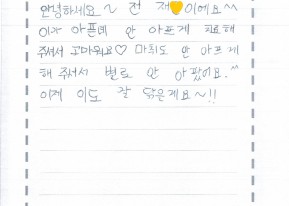 안녕하세요~ 전 재💛이에요^^
이가 아픈데 안 아프게 치료해
주셔서 고마워요♡ 마취도 안 아프게
해 주셔서 별로 안 아팠어요.^^
이제 이도 잘 닦을게요~!!